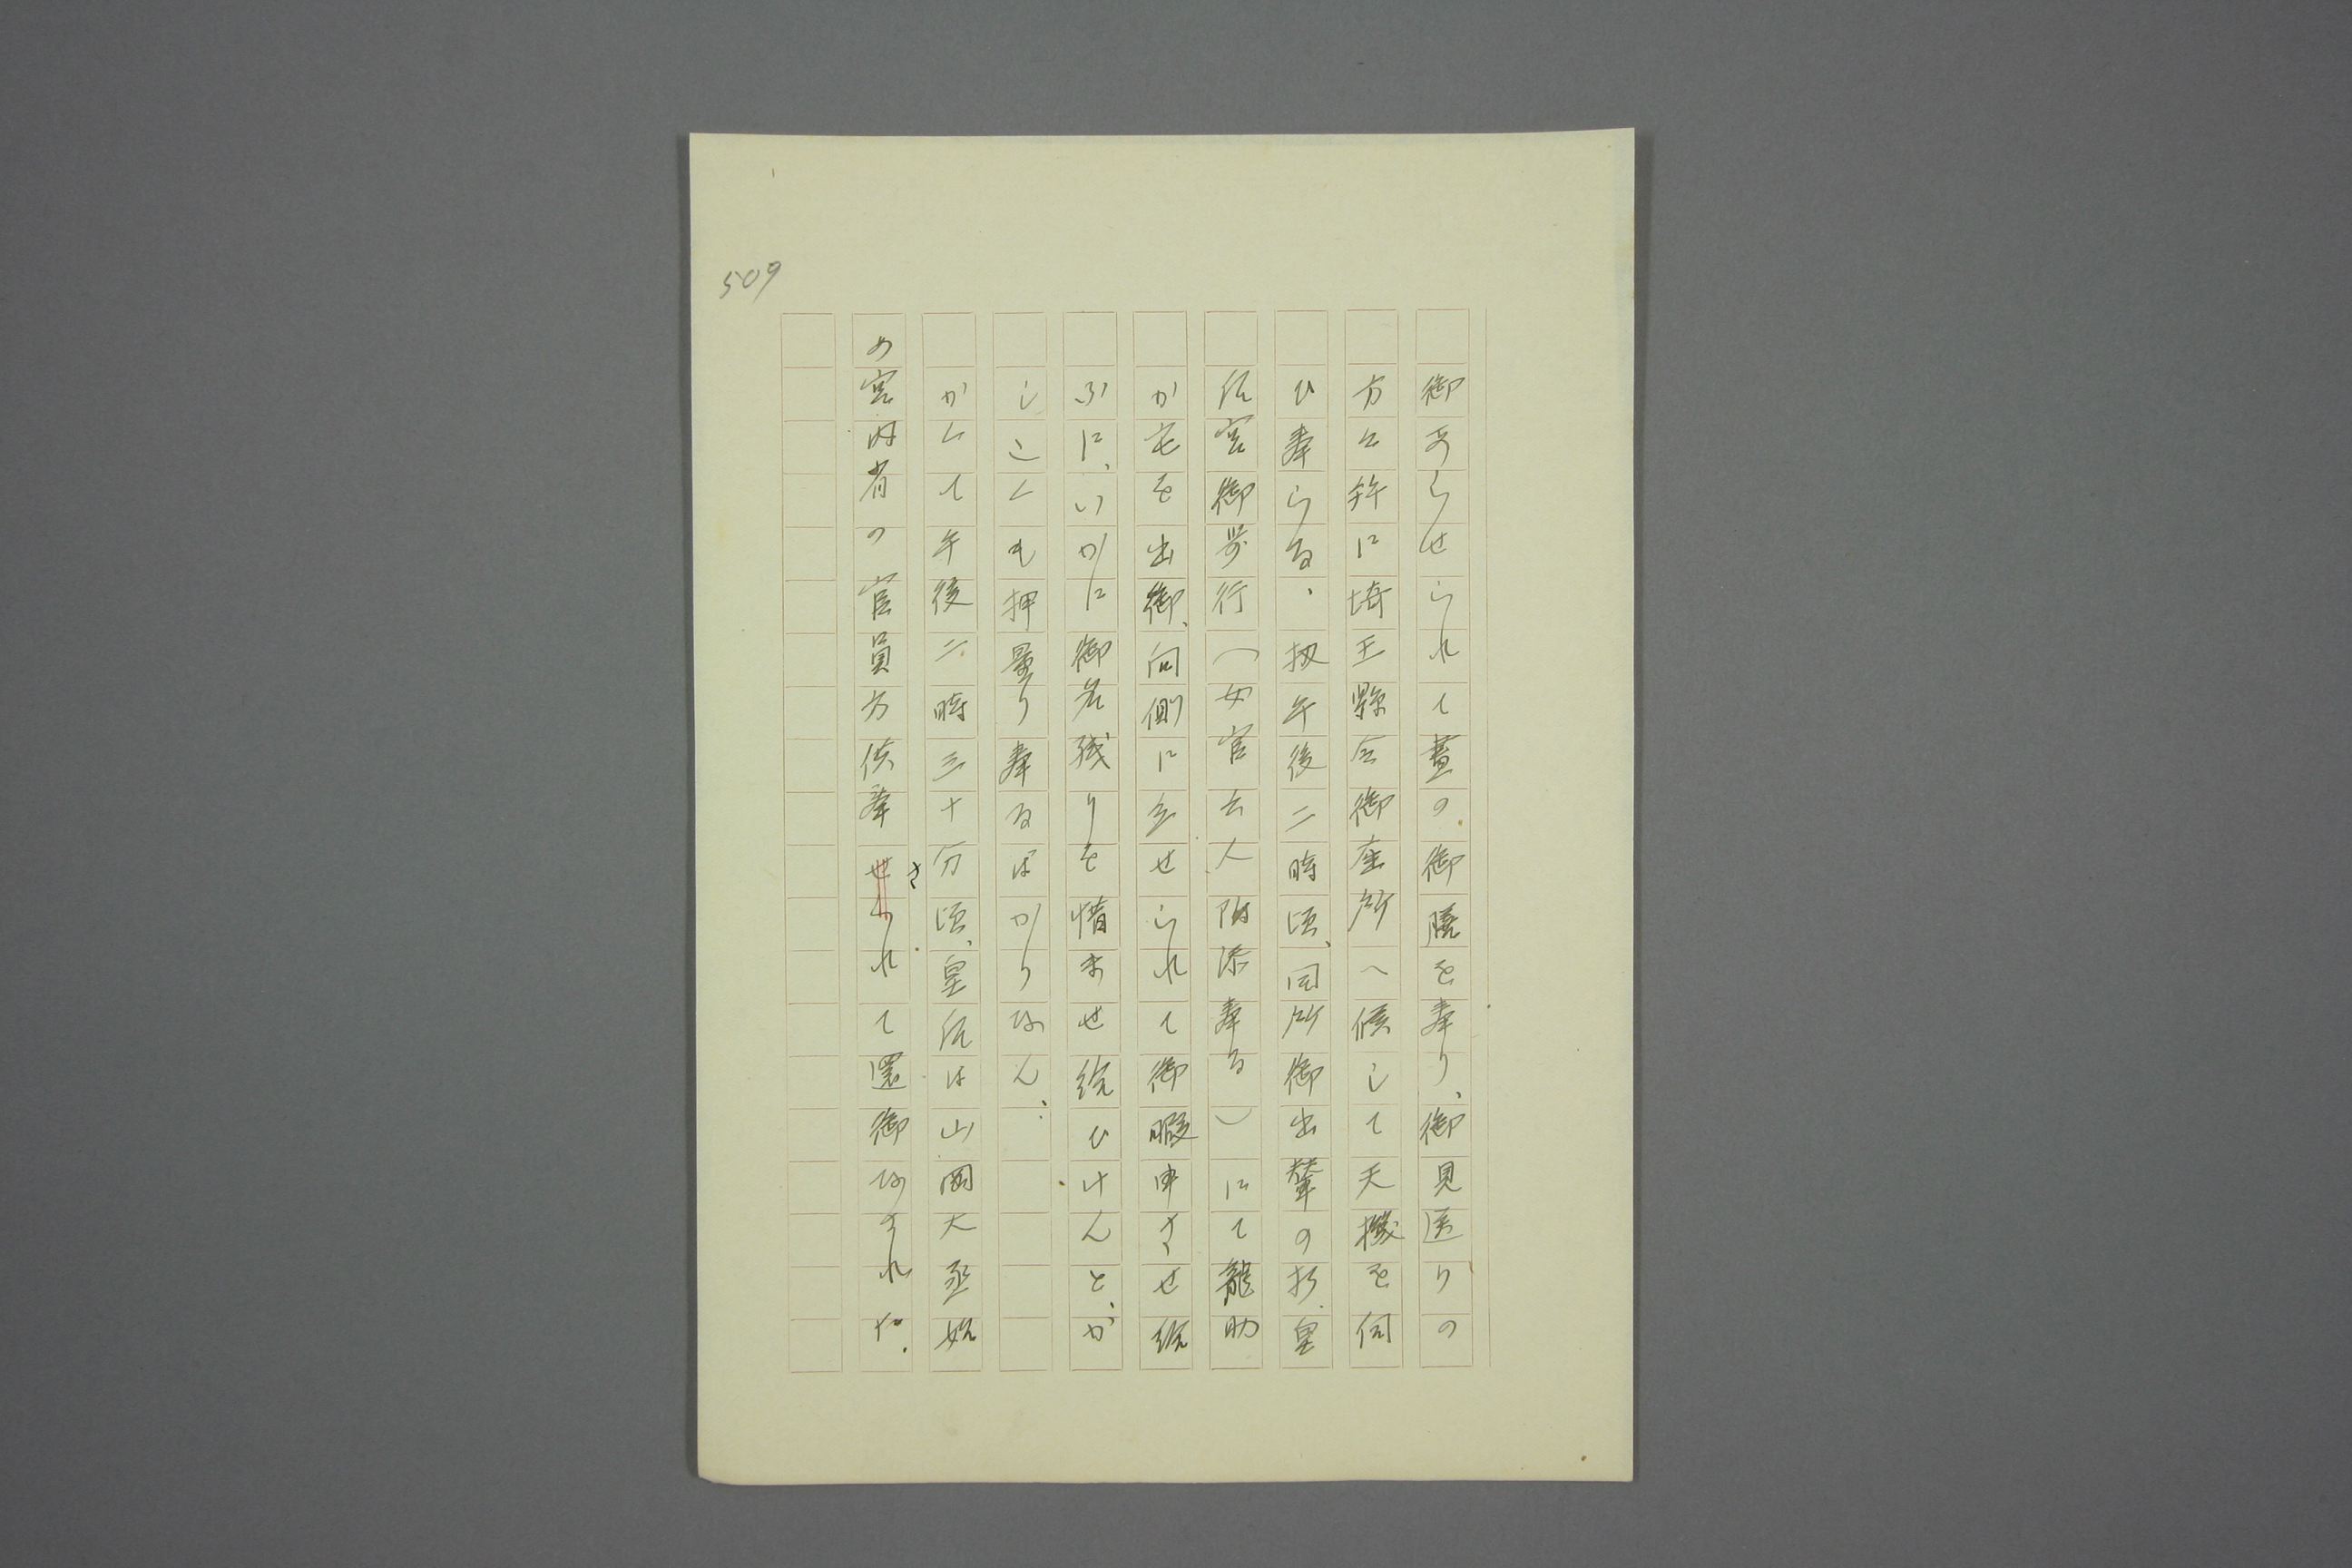 509
御あらせられて昼の御膳を奉り、御見送りの
方々幷に埼玉縣令御座所へ候して天機を伺
ひ奉らる、扨午後二時頃、同所御出輦の折、皇
后宮御歩行（女官六人附添奉る）にて龍助
か宅を出御、向側に立せられて御暇申させ給
ふに、いかに御名残りを惜ませ給ひけんと、か
しこくも押量り奉るばかりなん、
かくて午後二時三十分頃、皇后は山岡大丞始
め宮内省の官員方供奉されて還御なされた。